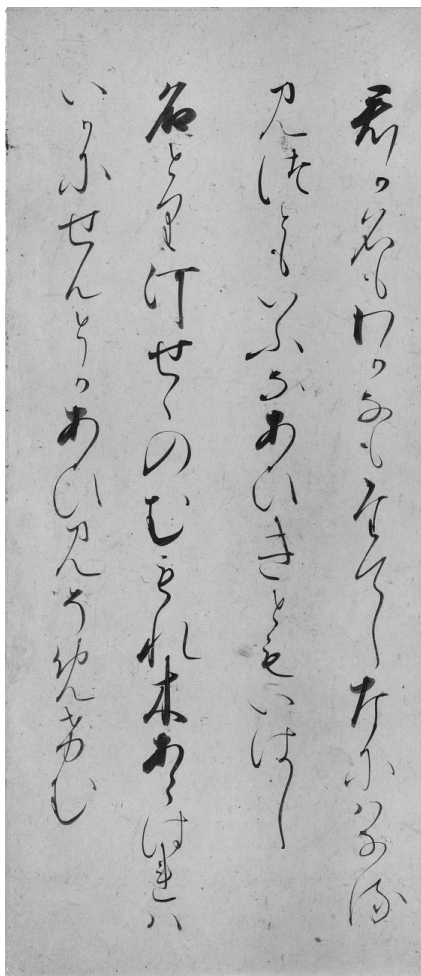 君か名もわかなもたてしなにはなる
見つともいふなあひきともいはし
名とり河せゝのむもれ木あらはれは
いかにせんとかあひ見そめけむ